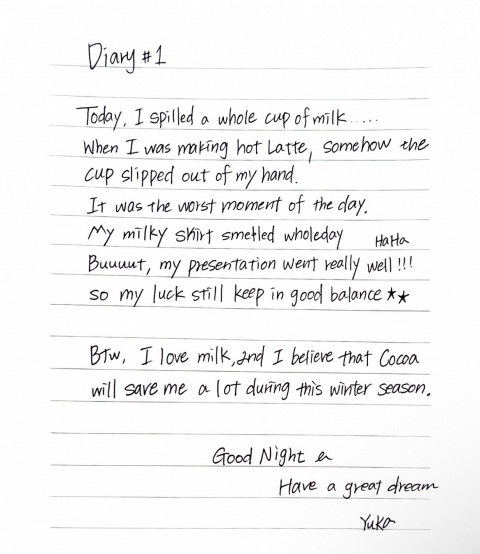 Diary #1
Today, I spilled a whole cup of milk.....
When I was making hot Latte, somehow the
cup slipped out of my hand.
It was the worst moment of the day.
My milky shirt smelled wholeday HaHa
Buuuut, my presentation went really well!!!
so my luck still keep in good balance ★★
Btw, I love milk, and I believe that Cocoa
will save me a lot during this winter season.
Good Night
Have a great dream
Yuka